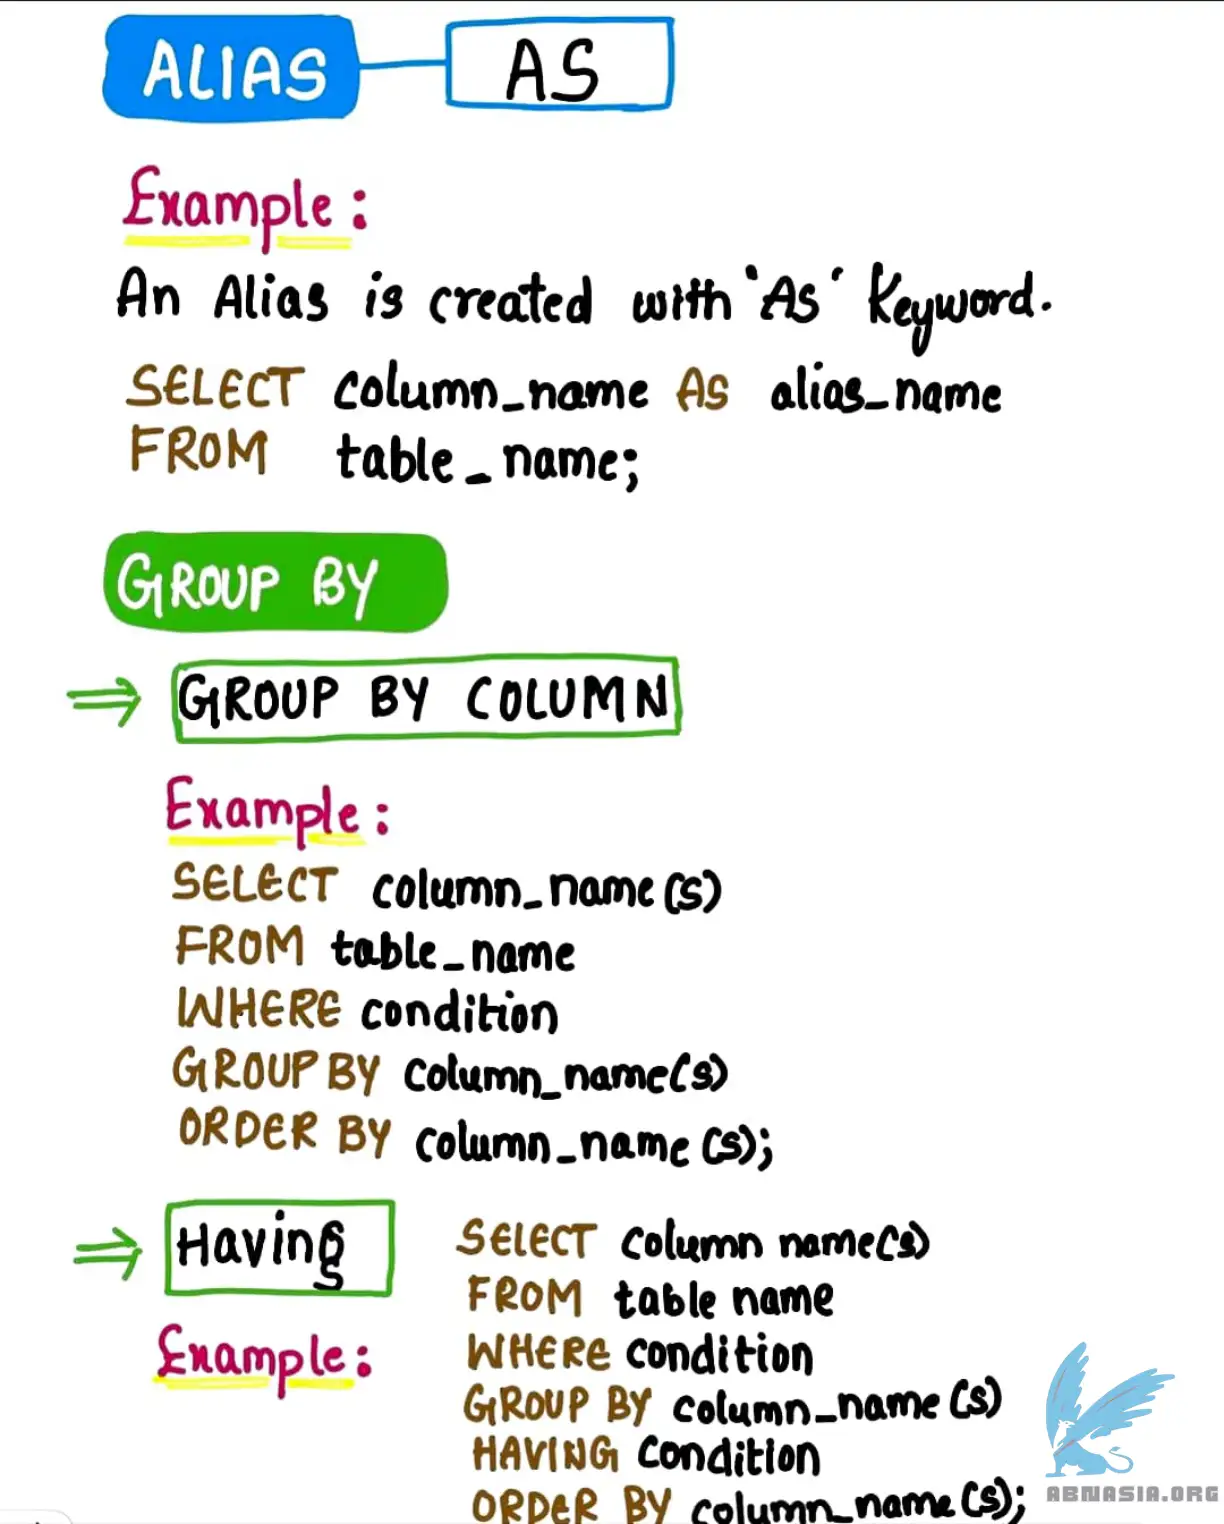 ALIAS AS
Example:
An Alias is created with 'As' Keyword.
SELECT column_name As alias_name
FROM table_name;
GROUP BY
⇒ GROUP BY COLUMN
Example:
SELECT column_name(s)
FROM table_name
WHERE condition
GROUP BY column_name(s)
ORDER BY column_name(s);
⇒ Having
Example:
SELECT column name(s)
FROM table name
WHERE condition
GROUP BY column_name(s)
HAVING condition
ORDER BY column_name(s);
ABNASIA.ORG